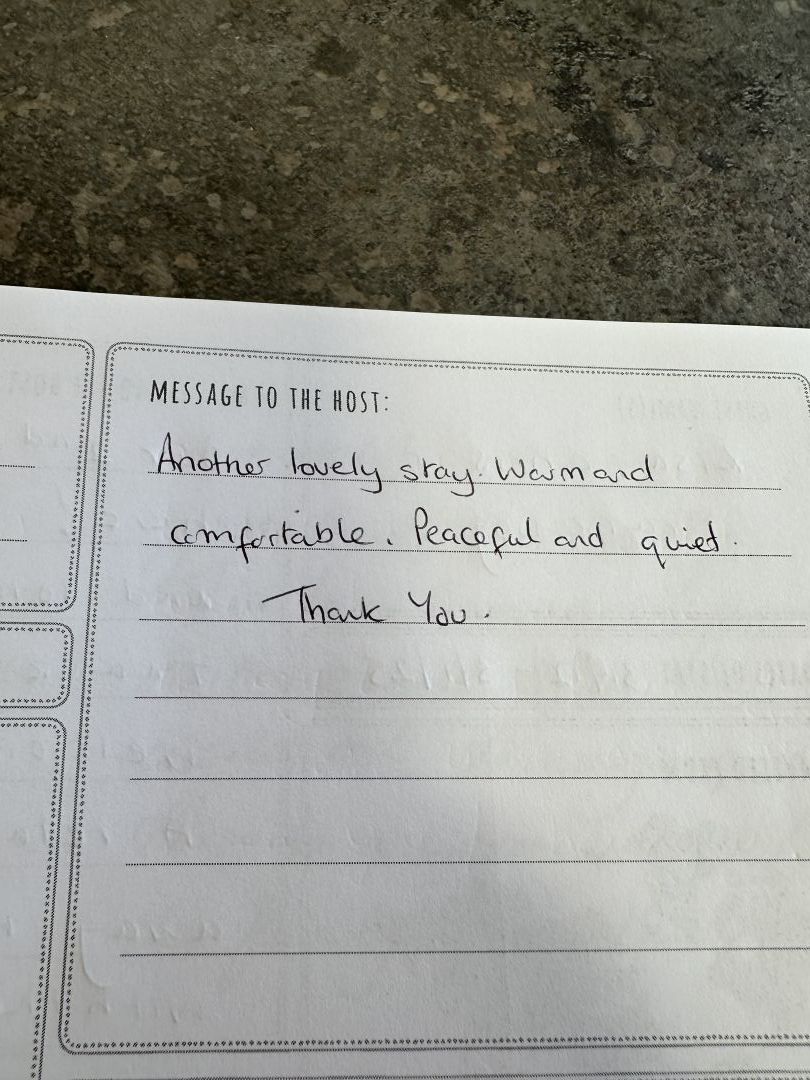 MESSAGE TO THE HOST:
Another lovely stay. Warm and
comfortable. Peaceful and quiet.
Thank You.